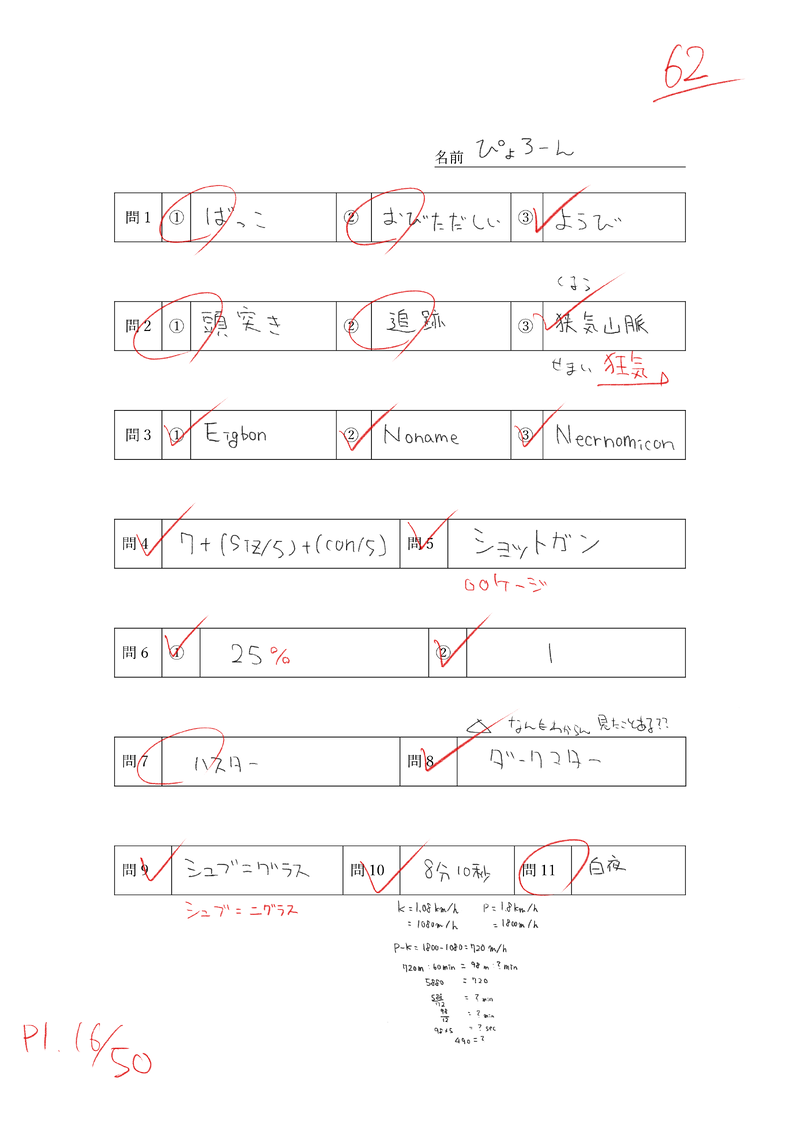 62
名前 ぴょろーん
問1 ① ばっこ ② おびただしい ③ ようび
くるう
問2 ① 頭突き ② 追跡 ③ 狭気山脈
せまい 狂気
問3 ① Eigbon ② Noname ③ Necrnomicon
問4 7+(SIZ/5)+(con/5) 問5 ショットガン
00ケージ
問6 ① 25% ② 1
なんもわからん 見たことある??
問7 ハスター 問8 ダークマター
問9 シュブ=グラス 問10 8分10秒 問11 白夜
シュブ=ニグラス
K=1.08km/h P=1.8km/h
=1080m/h =1800m/h
P-K=1800-1080=720m/h
720m:60min=98m:?min
5880 =720
588/72 =?min
98/12 =?min
=?sec
490=?
P1. 16/50